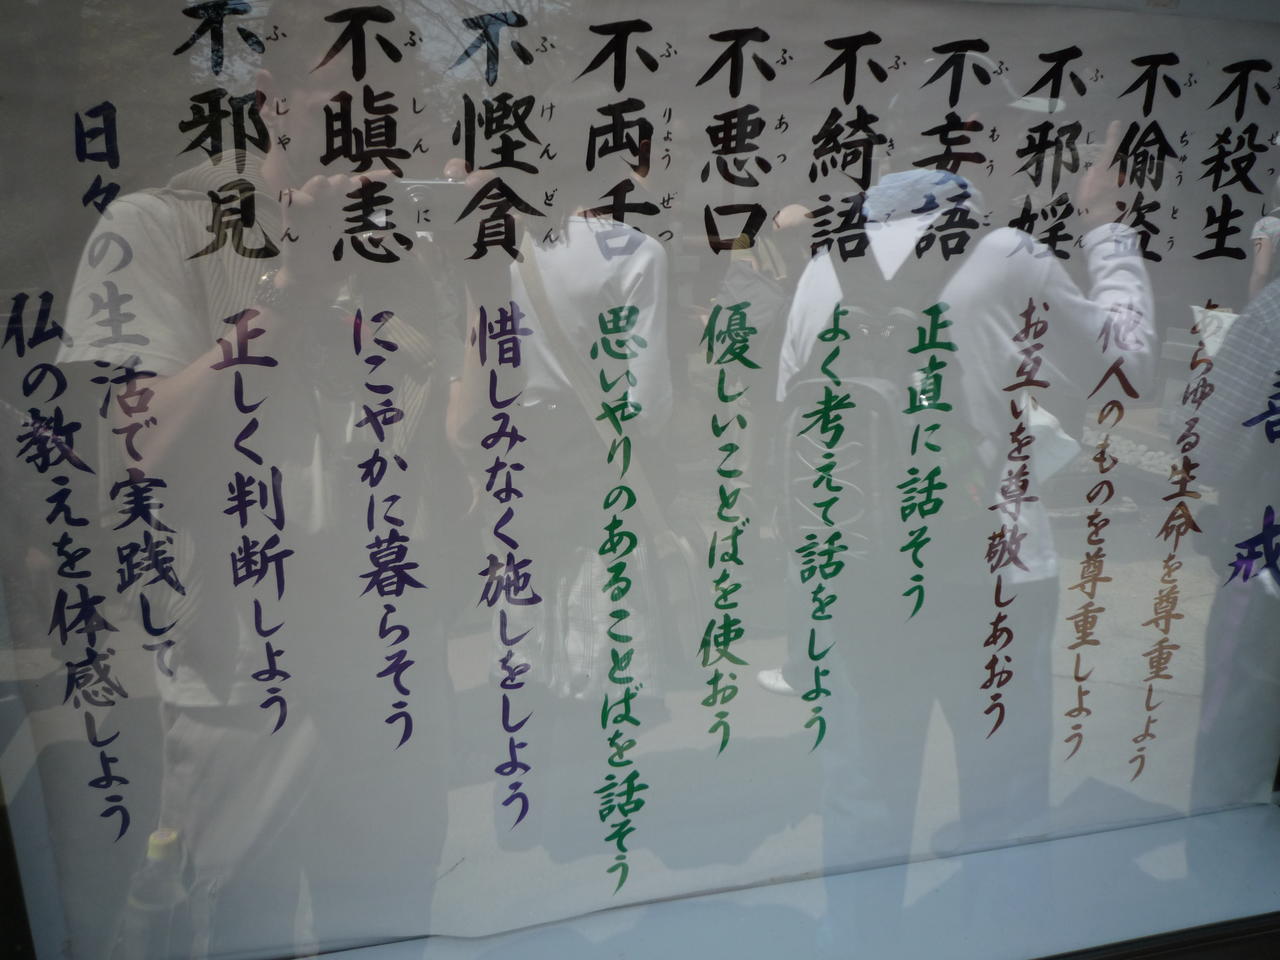 善戒
不殺生 あらゆる生命を尊重しよう
不偸盗 ふちゅうとう 他人のものを尊重しよう
不邪婬 ふじゃいん お互いを尊敬しあおう
不妄語 ふもうご 正直に話そう
不綺語 ふきご よく考えて話をしよう
不悪口 ふあっく 優しいことばを使おう
不両舌 ふりょうぜつ 思いやりのあることばを話そう
不慳貪 ふけんどん 惜しみなく施しをしよう
不瞋恚 ふしんに にこやかに暮らそう
不邪見 ふじゃけん 正しく判断しよう
日々の生活で実践して
仏の教えを体感しよう